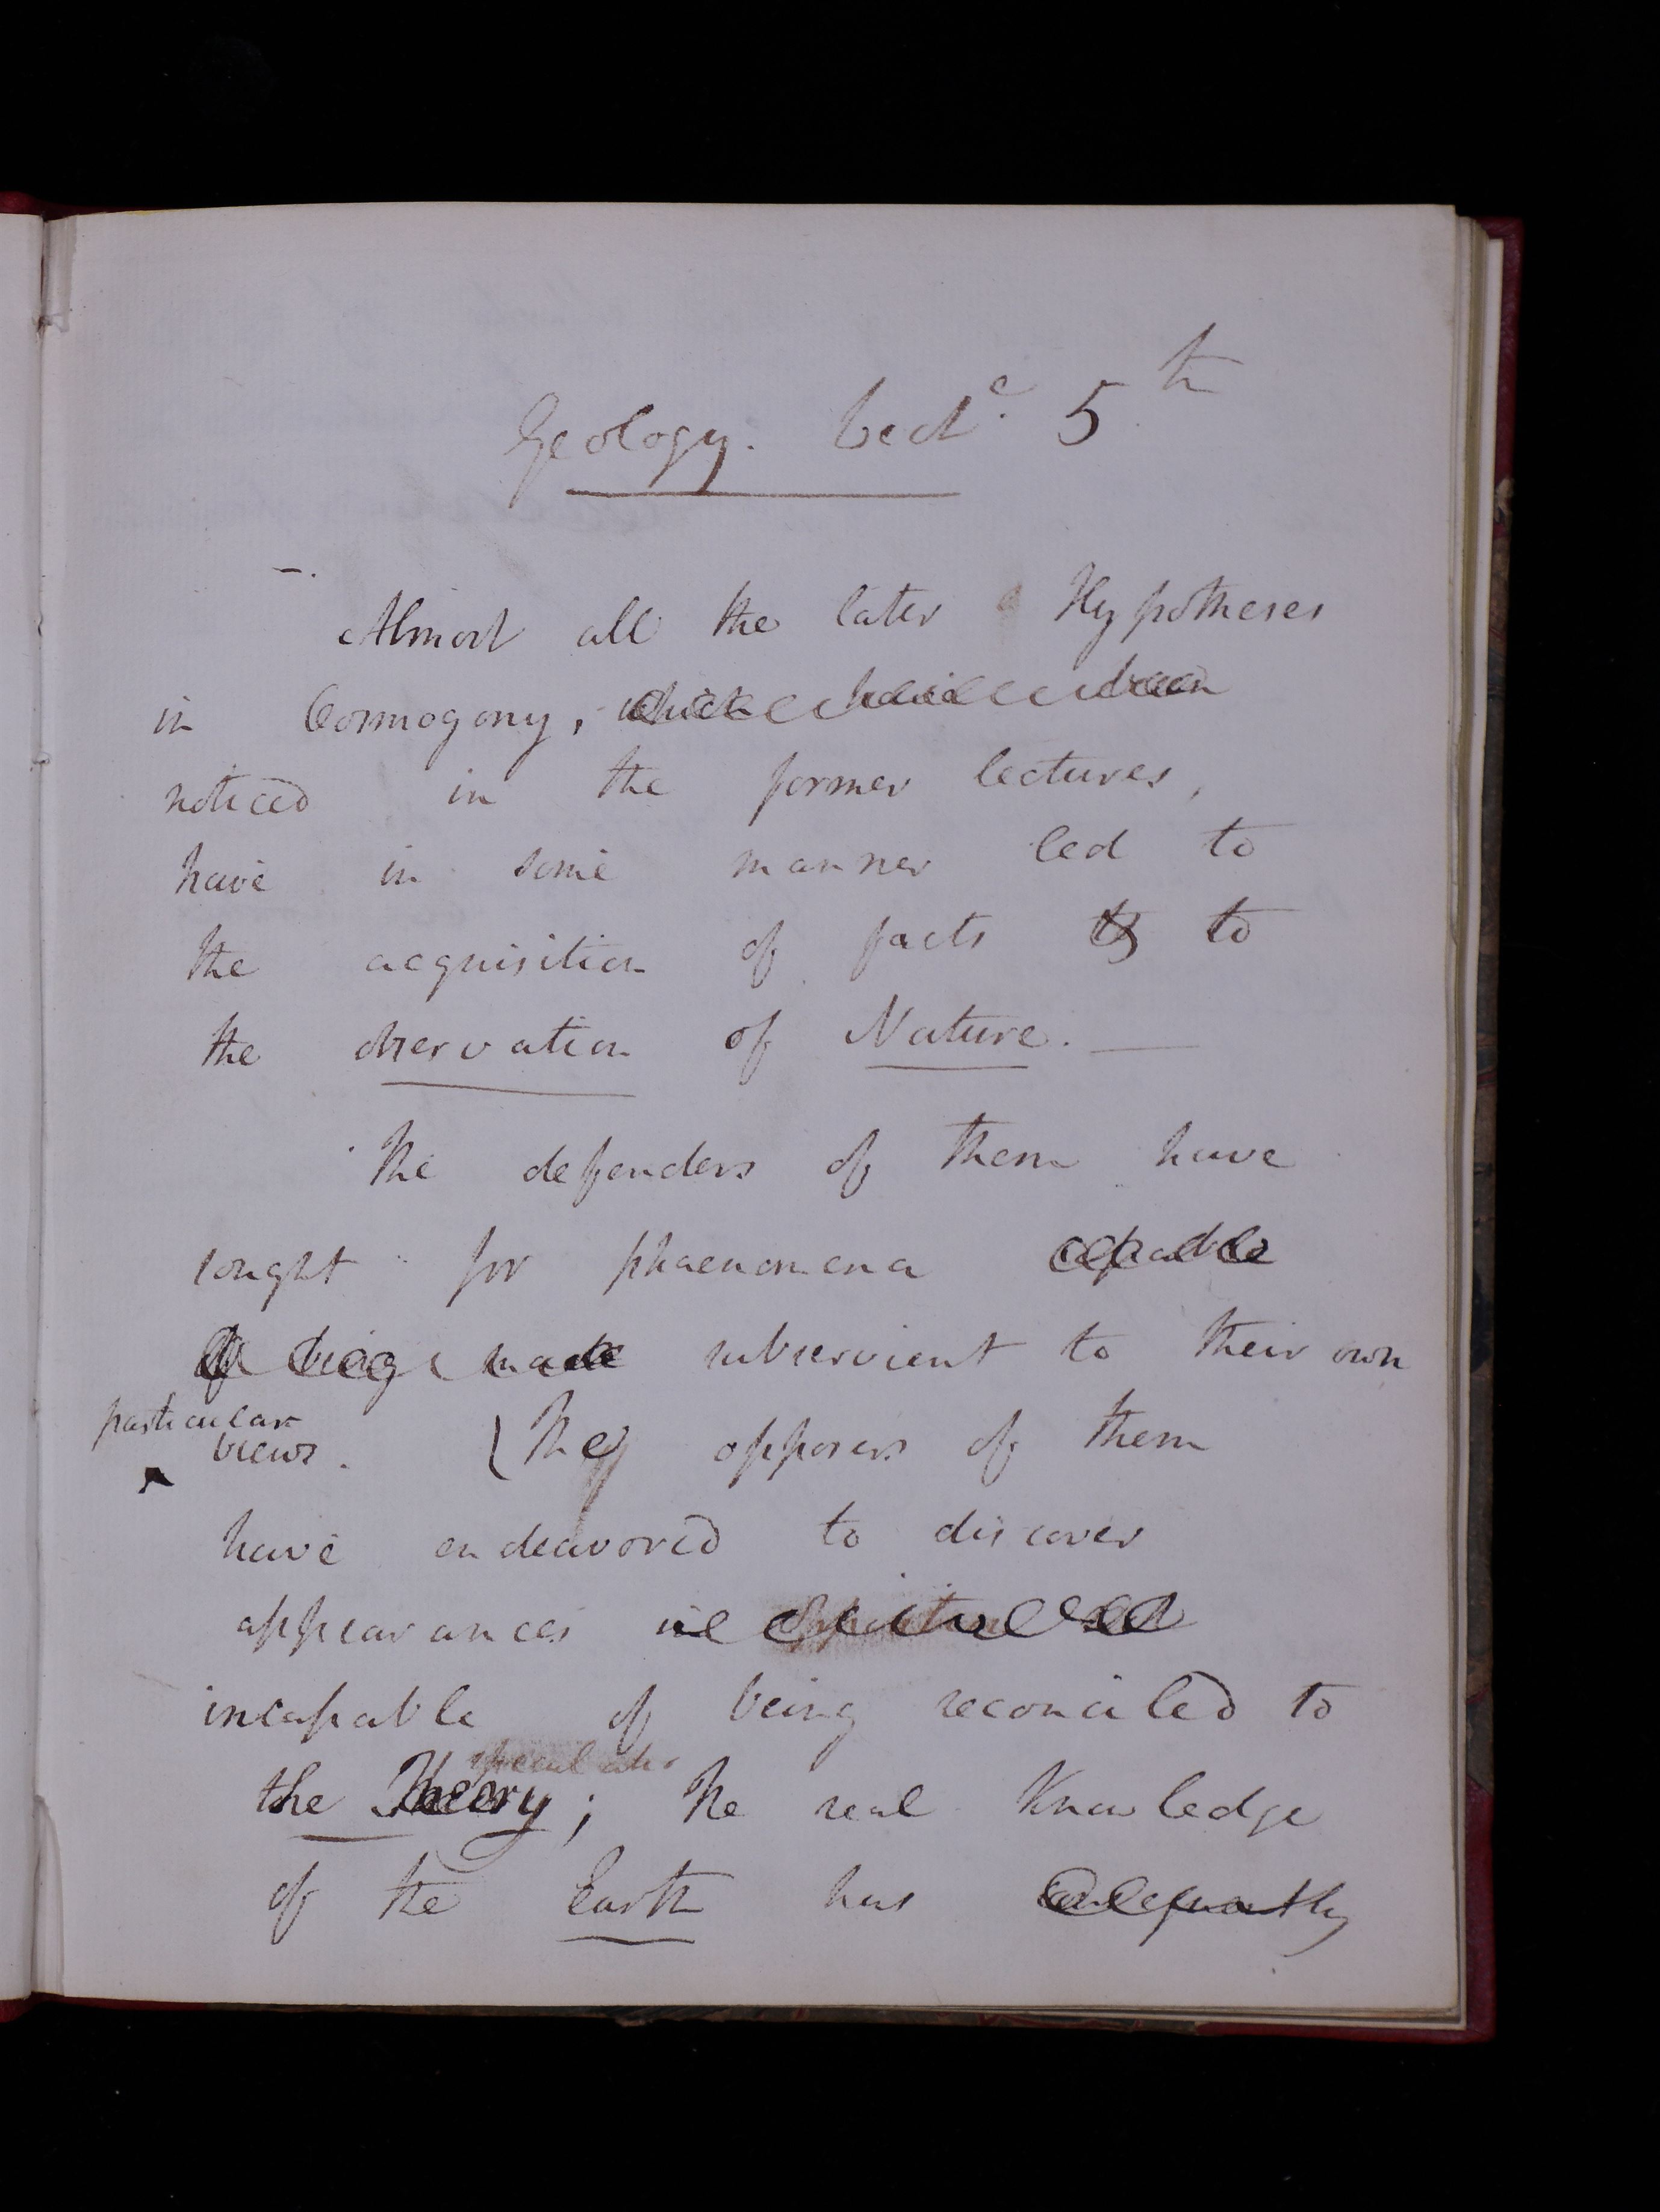 Geology. Lect.e 5.th
—. Almost all the later Hypotheses
in Cosmogony, which have been
noticed in the former lectures,
have in some manner led to
the acquisition of facts & to
the observation of Nature. —
The defenders of them have
sought for phaenomena capable
of being made subservient to their own
particular
views. (The opposers of them
have endeavored to discover
appearances in
incapable of being reconciled to
the Theory; The real Knowledge
of the Earth has